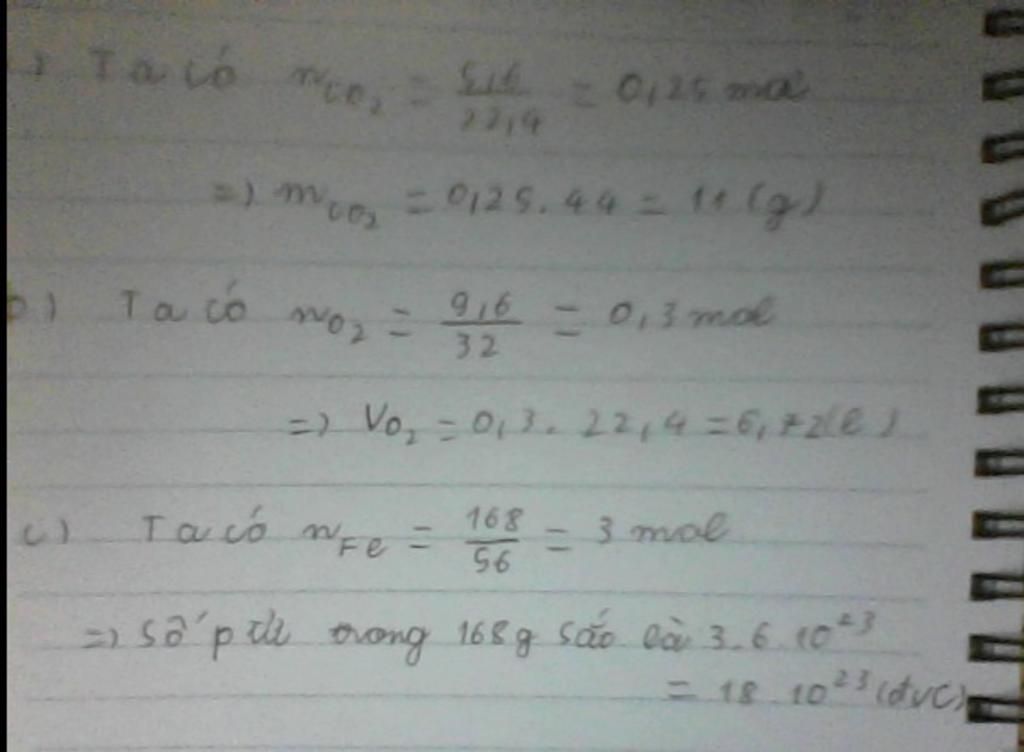 Ta có nCO2 = 5,6/22,4 = 0,25 mol
=> mCO2 = 0,25.44 = 11 (g)
b) Ta có nO2 = 9,6/32 = 0,3 mol
=> VO2 = 0,3.22,4 = 6,72(l)
c) Ta có nFe = 168/56 = 3 mol
=> số p tử trong 168g sắt là 3.6.10^23
= 18.10^23 (đvC)